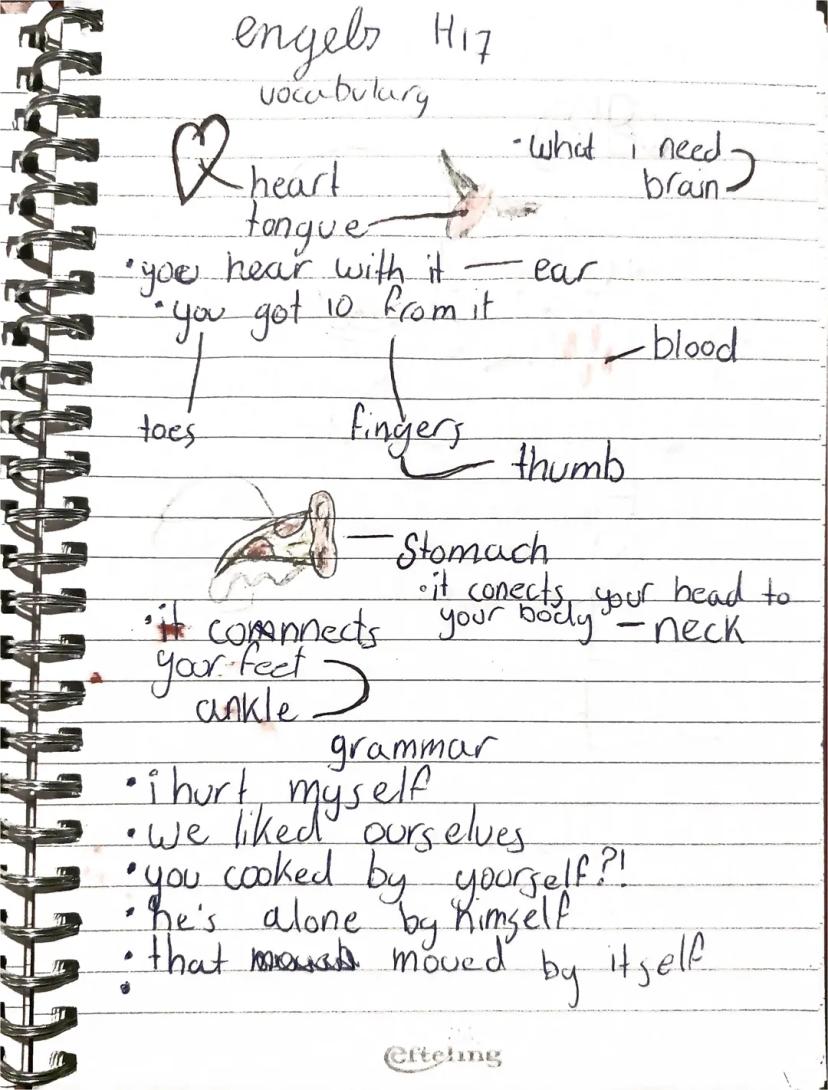 engels H17
vocabulary
•what i need
brain
heart
tongue
•you hear with it — ear
•you got 10 from it
blood
toes
fingers
thumb
Stomach
•it conects your head to
your body — neck
•it connects
your feet
ankle
grammar
•i hurt myself
•we liked ourselves
•you cooked by yourself?!
•he's alone by himself
•that moved by itself
•
efteling